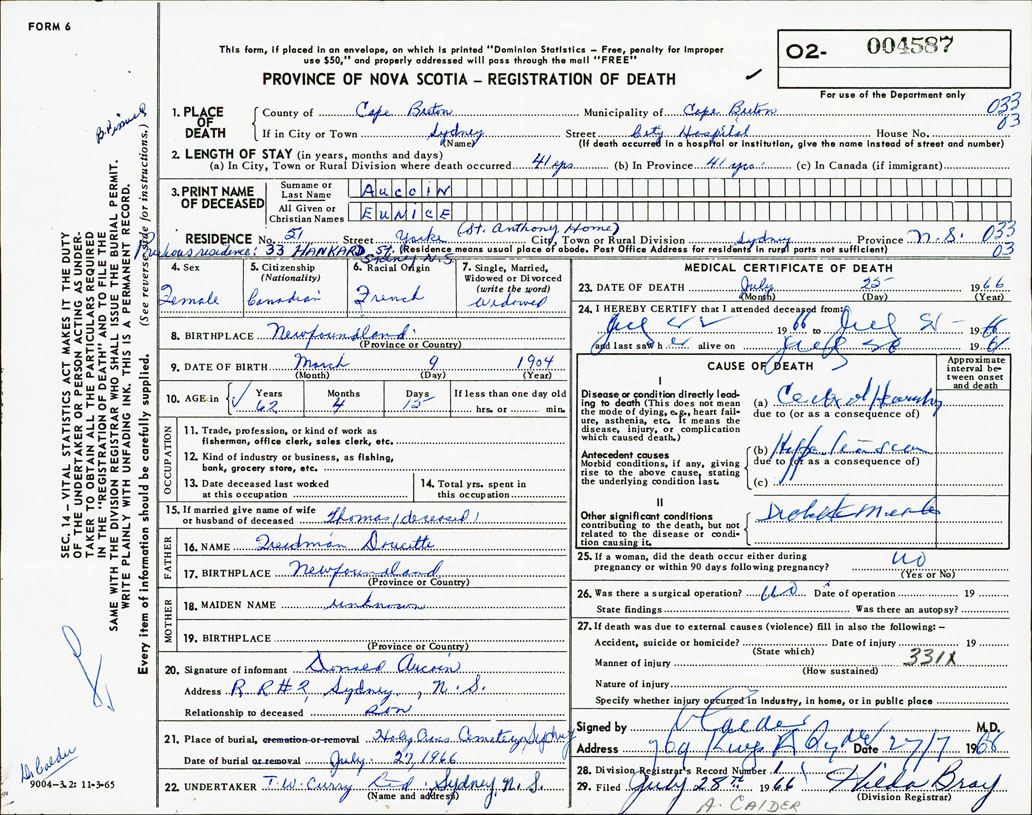 FORM 6
This form, if placed in an envelope, on which is printed "Dominion Statistics – Free, penalty for improper
use $50," and properly addressed will pass through the mail "FREE"
PROVINCE OF NOVA SCOTIA – REGISTRATION OF DEATH
O2- 004587
For use of the Department only
1. PLACE OF DEATH
County of Cape Breton Municipality of Cape Breton 033
03
If in City or Town Sydney Street City Hospital House No.
(Name) (If death occurred in a hospital or institution, give the name instead of street and number)
2. LENGTH OF STAY (in years, months and days)
(a) In City, Town or Rural Division where death occurred 41 yrs (b) In Province 41 yrs. (c) In Canada (if immigrant)
3. PRINT NAME OF DECEASED
Surname or Last Name AUCOIN
All Given or Christian Names EUNICE
(St. Anthony Home)
RESIDENCE No. 51 Street Yorke City, Town or Rural Division Sydney Province N.S. 033
03
(Residence means usual place of abode. Post Office Address for residents in rural parts not sufficient)
Previous residence: 33 HANKARD St.
Sydney N.S.
4. Sex Female
5. Citizenship (Nationality) Canadian
6. Racial Origin French
7. Single, Married, Widowed or Divorced (write the word) Widowed
8. BIRTHPLACE Newfoundland
(Province or Country)
9. DATE OF BIRTH March 9 1904
(Month) (Day) (Year)
10. AGE in Years Months Days If less than one day old
62 4 15 hrs. or min.
OCCUPATION
11. Trade, profession, or kind of work as
fisherman, office clerk, sales clerk, etc.
12. Kind of industry or business, as fishing,
bank, grocery store, etc.
13. Date deceased last worked
at this occupation
14. Total yrs. spent in
this occupation
15. If married give name of wife
or husband of deceased Thomas (deceased)
FATHER
16. NAME Doucette
17. BIRTHPLACE Newfoundland
(Province or Country)
MOTHER
18. MAIDEN NAME unknown
19. BIRTHPLACE
(Province or Country)
20. Signature of informant Donald Aucoin
Address R R # 2 Sydney, N.S.
Relationship to deceased Son
21. Place of burial, cremation or removal Holy Cross Cemetery Sydney
Date of burial or removal July 27, 1966
22. UNDERTAKER T.W. Curry Ltd Sydney, N.S.
(Name and address)
MEDICAL CERTIFICATE OF DEATH
23. DATE OF DEATH July 25 1966
(Month) (Day) (Year)
24. I HEREBY CERTIFY that I attended deceased from:
1966 to 1966
and last saw h alive on 19
CAUSE OF DEATH
Approximate interval between onset and death
I
Disease or condition directly leading to death (This does not mean the mode of dying, e.g., heart failure, asthenia, etc. It means the disease, injury, or complication which caused death.)
(a)
due to (or as a consequence of)
Antecedent causes
Morbid conditions, if any, giving rise to the above cause, stating the underlying condition last.
(b)
due to (or as a consequence of)
(c)
II
Other significant conditions
contributing to the death, but not related to the disease or condition causing it.
25. If a woman, did the death occur either during
pregnancy or within 90 days following pregnancy? no
(Yes or No)
26. Was there a surgical operation? no Date of operation 19
State findings Was there an autopsy?
27. If death was due to external causes (violence) fill in also the following: –
Accident, suicide or homicide? Date of injury 19
(State which)
Manner of injury 331X
(How sustained)
Nature of injury
Specify whether injury occurred in Industry, in home, or in public place
Signed by Calder M.D.
Address 769 Date 27/7 1966
28. Division Registrar's Record Number
29. Filed July 28th 1966 Hilda Bray
(Division Registrar)
A. CALDER
SEC. 14 – VITAL STATISTICS ACT MAKES IT THE DUTY
OF THE UNDERTAKER OR PERSON ACTING AS UNDER-
TAKER TO OBTAIN ALL THE PARTICULARS REQUIRED
IN THE "REGISTRATION OF DEATH" AND TO FILE THE
SAME WITH THE DIVISION REGISTRAR WHO SHALL ISSUE THE BURIAL PERMIT.
WRITE PLAINLY WITH UNFADING INK. THIS IS A PERMANENT RECORD.
Every item of information should be carefully supplied. (See reverse side for instructions.)
Dr Calder
9004–3.2: 11-3-65